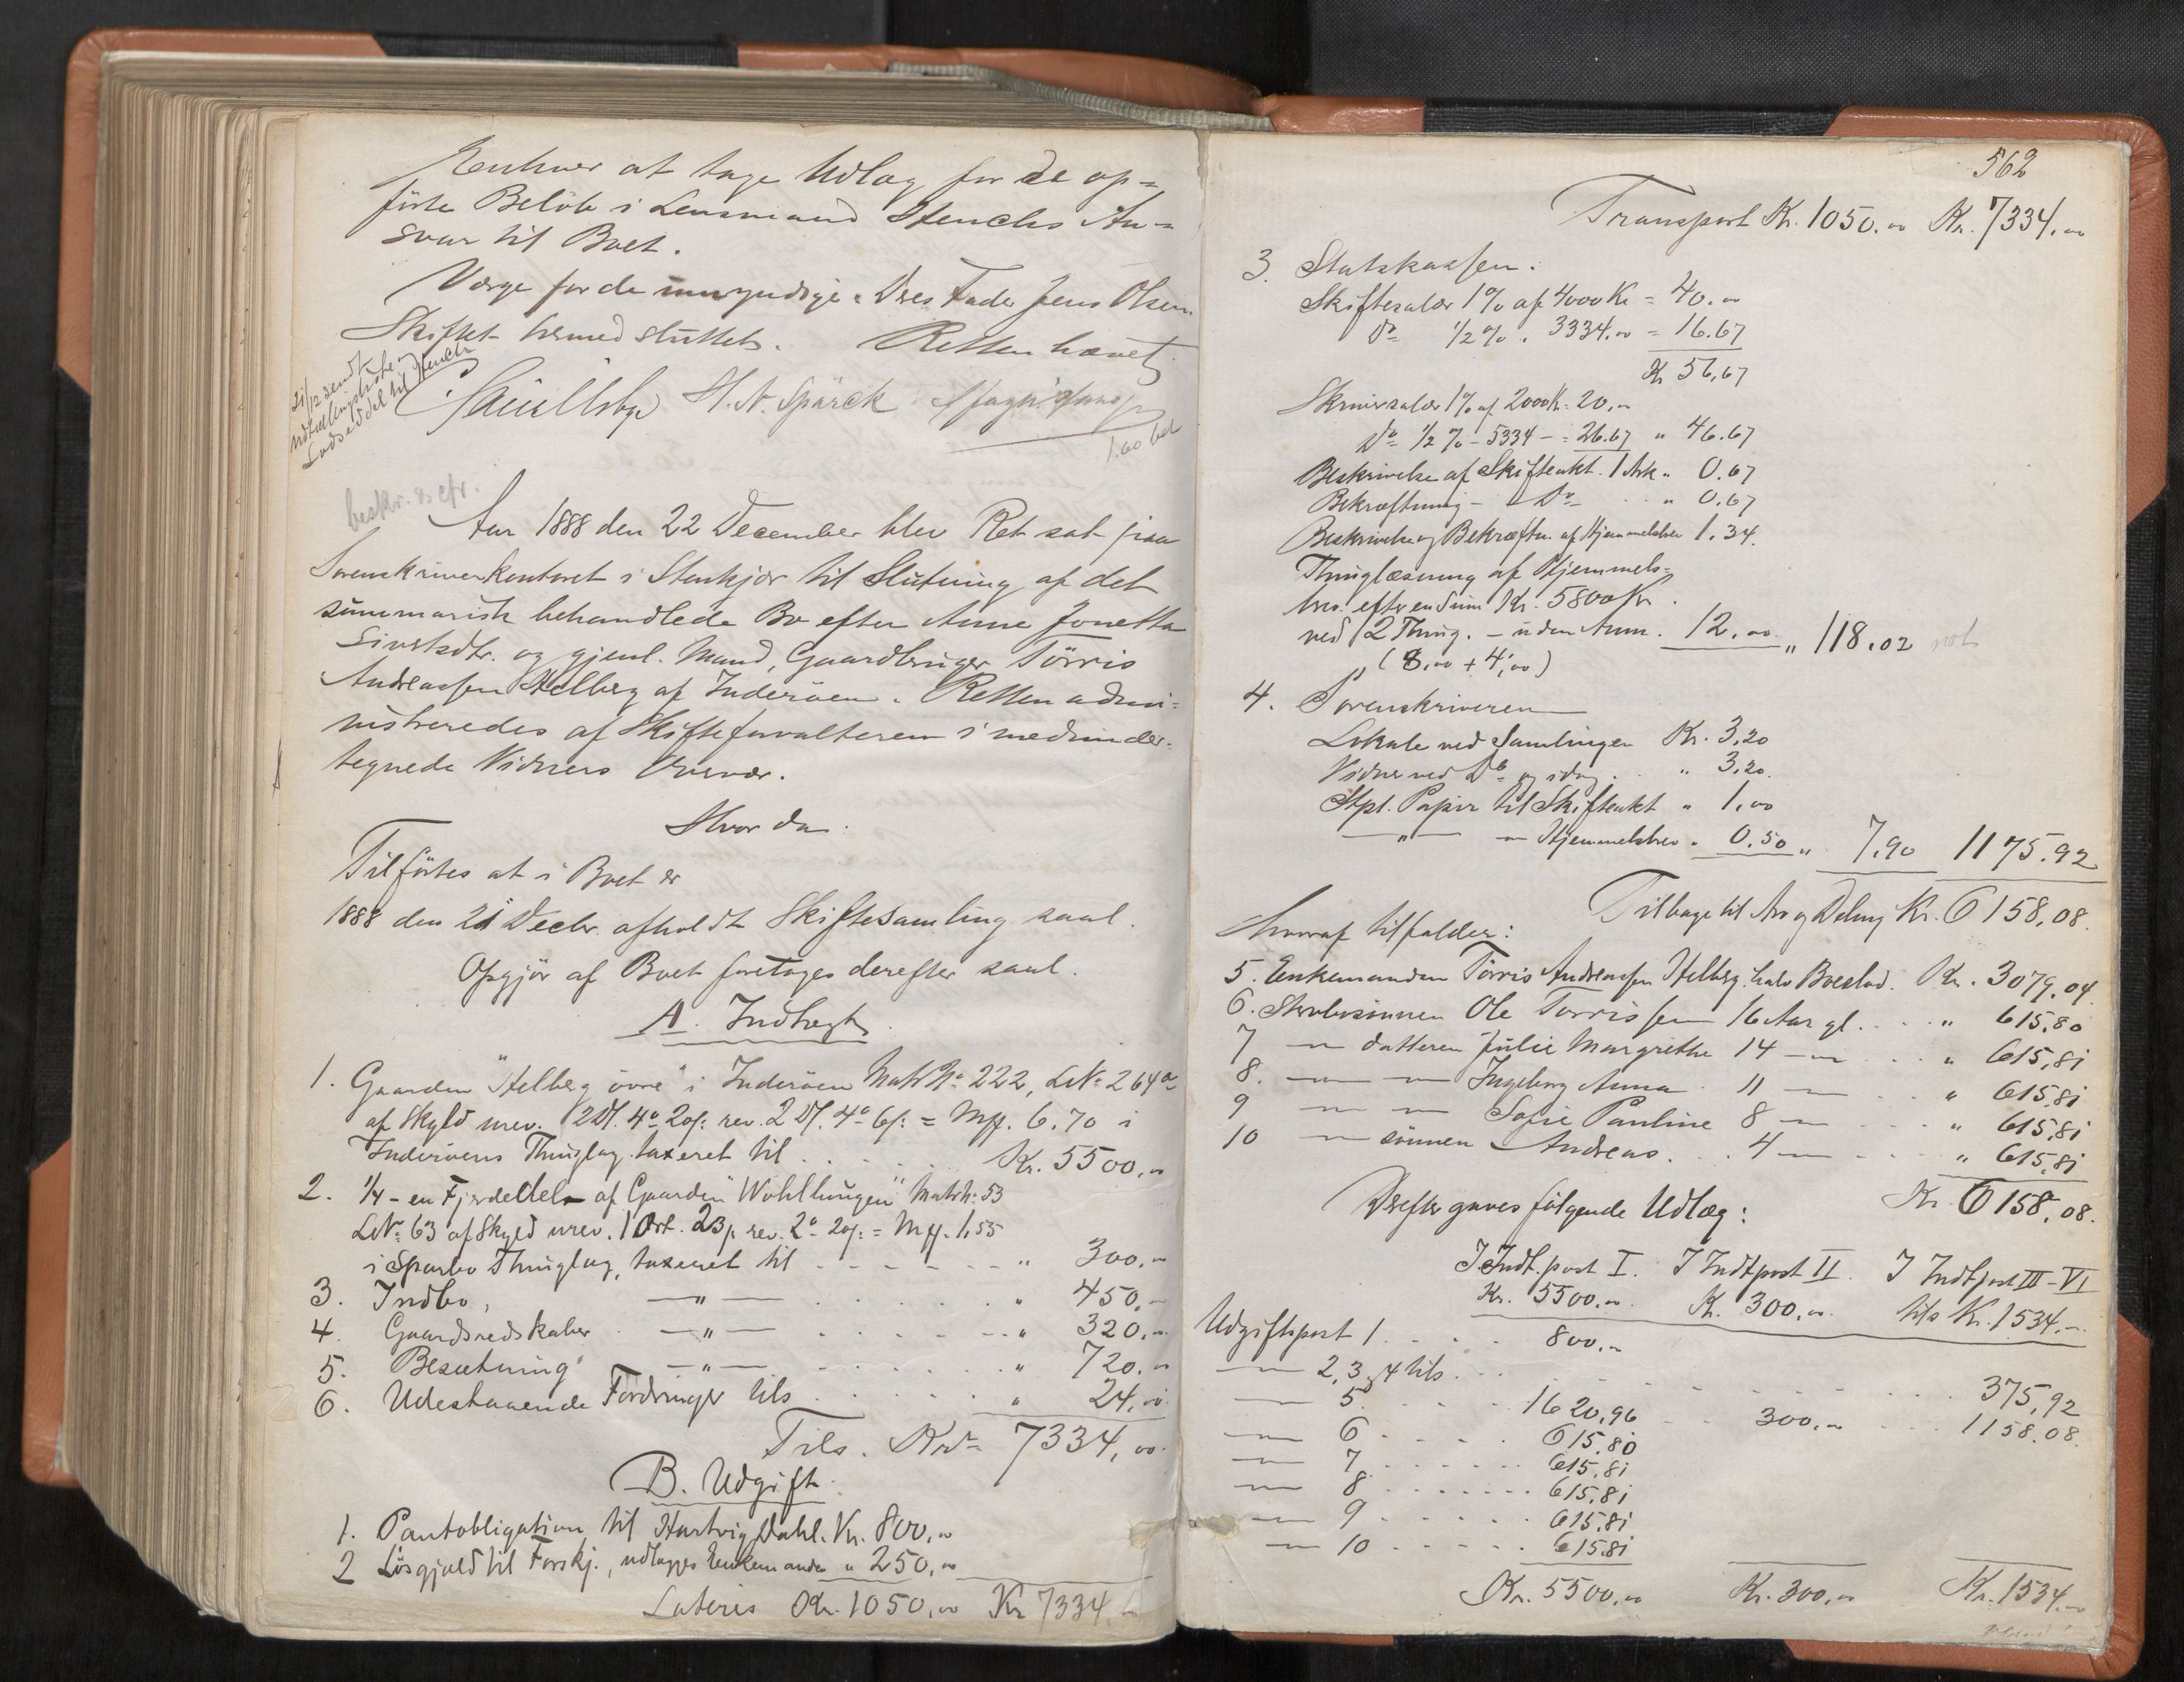 Enhver at tage Udlæg for de op=
förte Belöb i Lensmand Stenchs An=
svar til Boet.
Værge for de umyndige: Deres Fader Jens Olsen
Skiftet hermed sluttet. Retten hævet.
H. N. Spärck
1.60 bet
21/12 sendt
Udtællingsliste
Lodseddel til Stench
beskr. & efr.
Aar 1888 den 22 December blev Ret sat paa
Sorenskriverkontoret i Stenkjær til Slutning af det
summarisk behandlede Bo efter Anne Jonetta
Sivertsdtr. og gjenl. Mand, Gaardbruger Törris
Andreassen Helberg af Inderöen. Retten admi=
nistreredes af Skifteforvalteren i medunder=
tegnede Vidners Overvær.
Hvorda:
Tilförtes at i Boet er
1888 den 21 Decbr. afholdt Skiftesamling saal.
Opgjör af Boet foretoges derefter saal.
A. Indtægt.
1. Gaarden "Helberg övre" i Inderöen Matr No 222, LNo 264a
af Skyld urev. 2 Dl. 4o 20/: rev. 2 Dl. 4o 6/: = Mk. 6.70 i
Inderöens Thinglag taxeret til . . . . Kr. 5500,00
2. 1/4 - en Fjerdedel - af Gaarden "Wohllungen" Matr No 53
LNo 63 af Skyld urev. 1 Ort. 23/: rev. 2o 20/: = Mk. 1,55
i Sparbo Thinglag, taxeret til - - - - - " 300,00
3. Indbo, —"— . . . . " 450,00
4. Gaardsredskaber —"— . . . . " 320,00
5. Besætning —"— . . . . " 720,00
6. Udestaaende Fordringer tils . . . . " 24,00
Tils. Kr 7334,00
B. Udgift.
1. Pantobligation til Hartvig Dahl. Kr. 800,00
2 Lösgjæld til Forskj., udlægges Enkemanden " 250,00
Lateris Kr. 1050,00 Kr 7334,00
562
Transport Kr. 1050.00 Kr. 7334.00
3. Statskassen:
Skiftesalær 1% af 4000 Kr = 40.00
Do 1/2% " 3334.00 = 16.67
Kr 56,67
Skriversalær 1% af 2000 Kr: 20,00
Do 1/2 % - 5334 - = 26.67 " 46.67
Beskrivelse af Skifteakt. 1 Ark " 0.67
Bekræftning - Do - . . " 0.67
Beskrivelse og Bekræftn. af Hjemmelsbrev 1.34.
Thinglæsning af Hjemmels=
brev. efter en Sum Kr. 5800 Kr.
ved 2 Thing. - uden Anm. 12,00 " 118.02
(8,00 + 4,00)
4. Sorenskriveren
Lokale ved Samlingen Kr. 3,20
Vidner ved Do og idag . . " 3,20.
Stpl. Papir til Skifteakt " 1,00
—"— — Hjemmelsbrev " 0.50 " 7,90 1175.92
Tilbage til Arv og Deling Kr. 6158,08.
hvoraf tilfalder:
5. Enkemanden Törris Andreassen Helberg, halv Boeslod. Kr. 3079,04.
6. Stervbosönnen Ole Törrissen 16 Aar gl. . . . " 615,80
7 — datteren Julie Margrethe 14 — . . . " 615,81
8. — — Ingeborg Anna 11 — . . . " 615,81
9 — — Sofie Pauline 8 — . . . " 615,81
10 — sönnen Andreas . . . 4 — . . . " 615,81
Kr. 6158,08.
Derefter gaves følgende Udlæg:
I Indt. post I. I Indtpost II. I Indtpost III-VI
Kr. 5500,00. Kr. 300,00. tils Kr. 1534,00
Udgiftspost 1 . . . . 800,00
— 2, 3, 4 tils . . . . . . . . 375,92
— 5 . . . . 1620,96 . . . 300,00 . . . 1158.08.
— 6 . . . . 615,80
— 7 . . . . 615,81
— 8 . . . . 615,81
— 9 . . . . 615,81
— 10 . . . . 615,81
Kr. 5500,00 Kr. 300,00 Kr. 1534,00